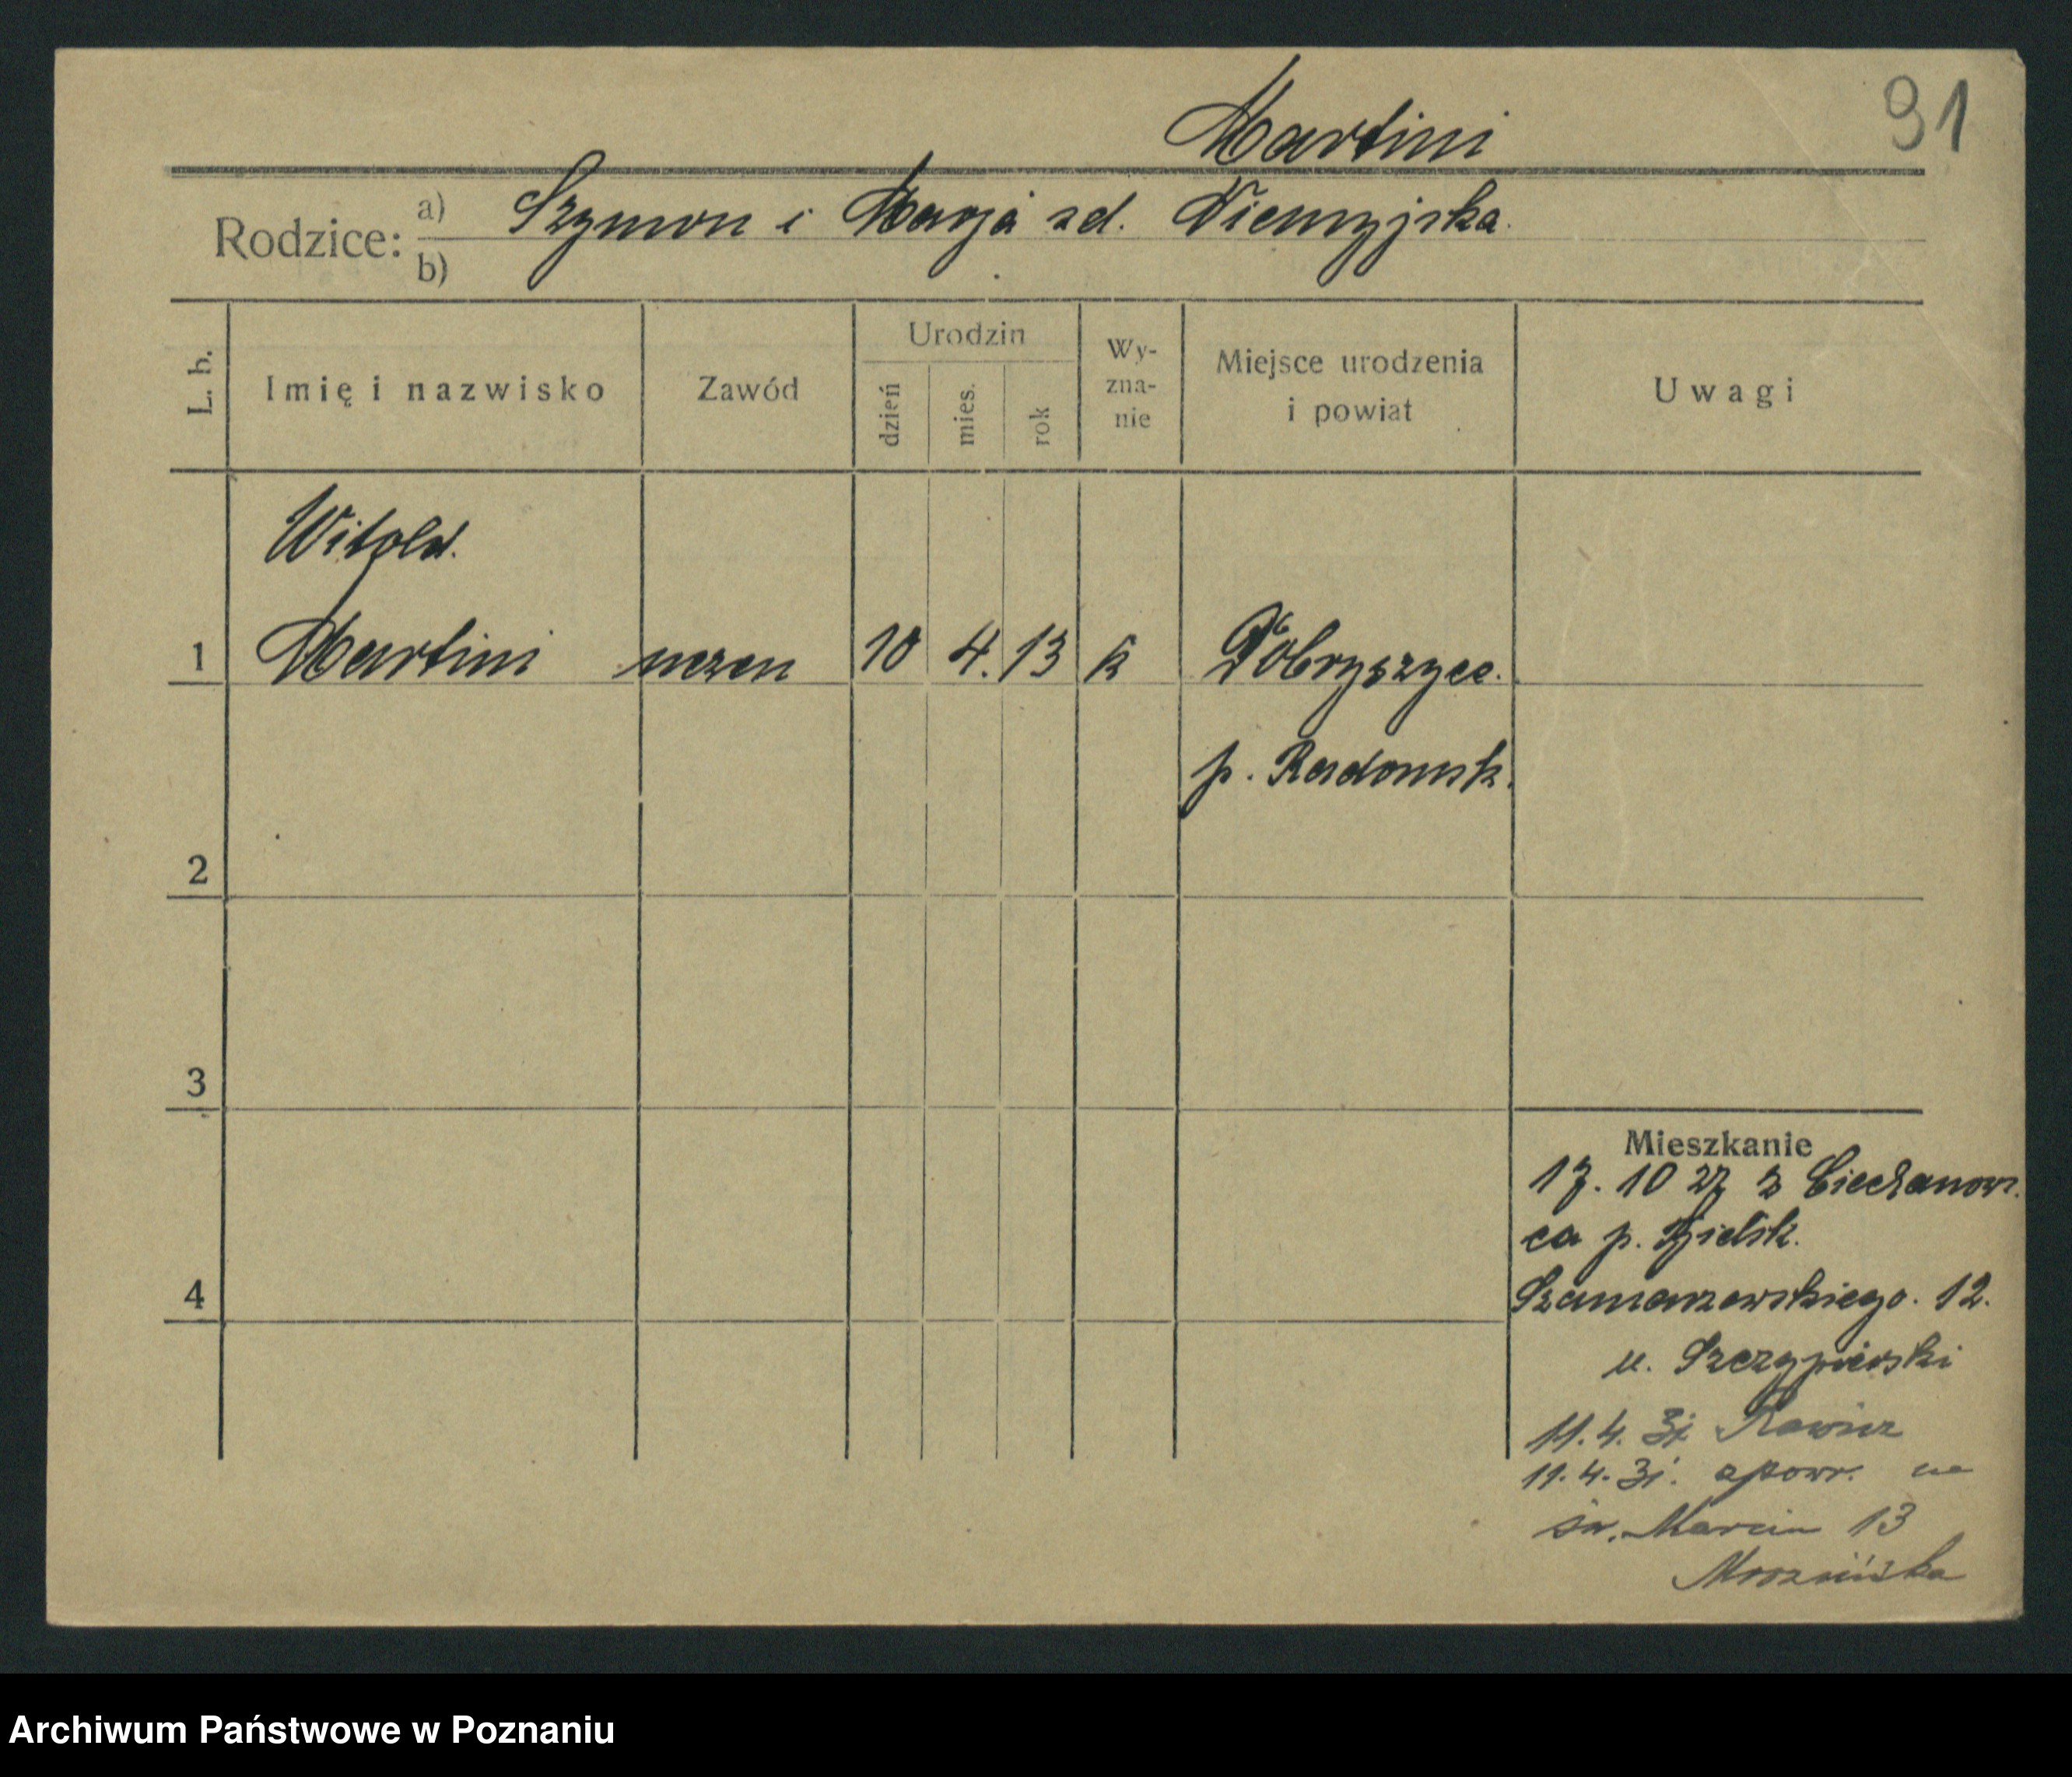 91
Martini
Rodzice: a) Szymon i Marja zd.
b)
L. b. Imię i nazwisko Zawód Urodzin dzień mies. rok Wy-zna-nie Miejsce urodzenia i powiat Uwagi
Witold.
1 Martini uczen 10 4. 13 k Dobryszyce.
p. Radomsk.
2
3
Mieszkanie
17. 10 27 z Ciechanow.
ca p. Bielsk.
4 Szamarzewskiego. 12.
u. Szczypiorski
11. 4. 31 Rawicz
11. 4. 31. zpowr. na
św. Marcin 13
Archiwum Państwowe w Poznaniu